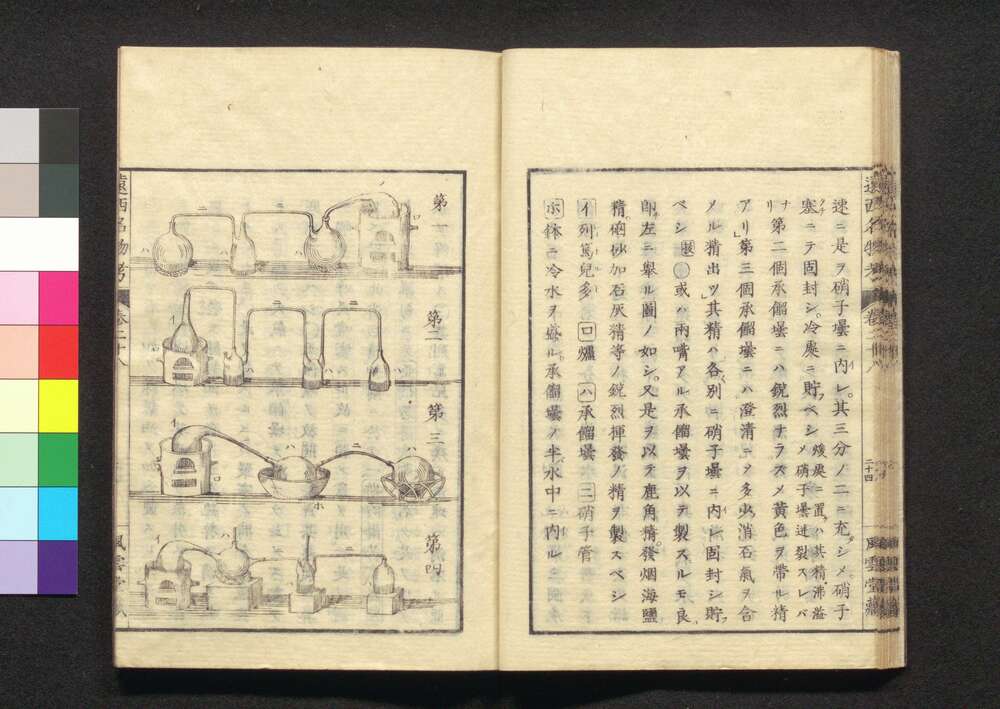 遠西名物考 卷二十八
二十四
風雲堂藏
速ニ是ヲ硝子壜ニ内レ其三分ノ二ニ充シメ硝子
塞ニテ固封シ冷處ニ貯ベシ煖處ニ置ハ其精沸溢シメ硝子壜迸裂スレバナリ
第二個承餾壜ニハ銳烈ナラズメ黃色ヲ帶ル精
アリ第三個承餾壜ニハ澄清ニシテ多少消石氣ヲ含
メル精出ツ其精ハ各別ニ硝子壜ニ内レ固封シ貯
ベシ 或ハ兩嘴アル承餾壜ヲ以テ製スルモ良
卽左ニ擧ル圖ノ如シ又是ヲ以テ鹿角精發烟海鹽
精硇砂加石灰精等ノ銳烈揮發ノ精ヲ製スベシ
イ列篤兒多 ロ爐 ハ承餾壜 ニ硝子管
ホ鉢ニ冷水ヲ盛ル承餾壜ノ半水中ニ内ル
第一
ロ
イ
ハ
ニ
ハ
第二
イ
ロ
ニ
ニ
第三
イ
ロ
ハ
ホ
ニ
ハ
第四
イ
ハ
ニ
ロ
遠西名物考 卷二十八